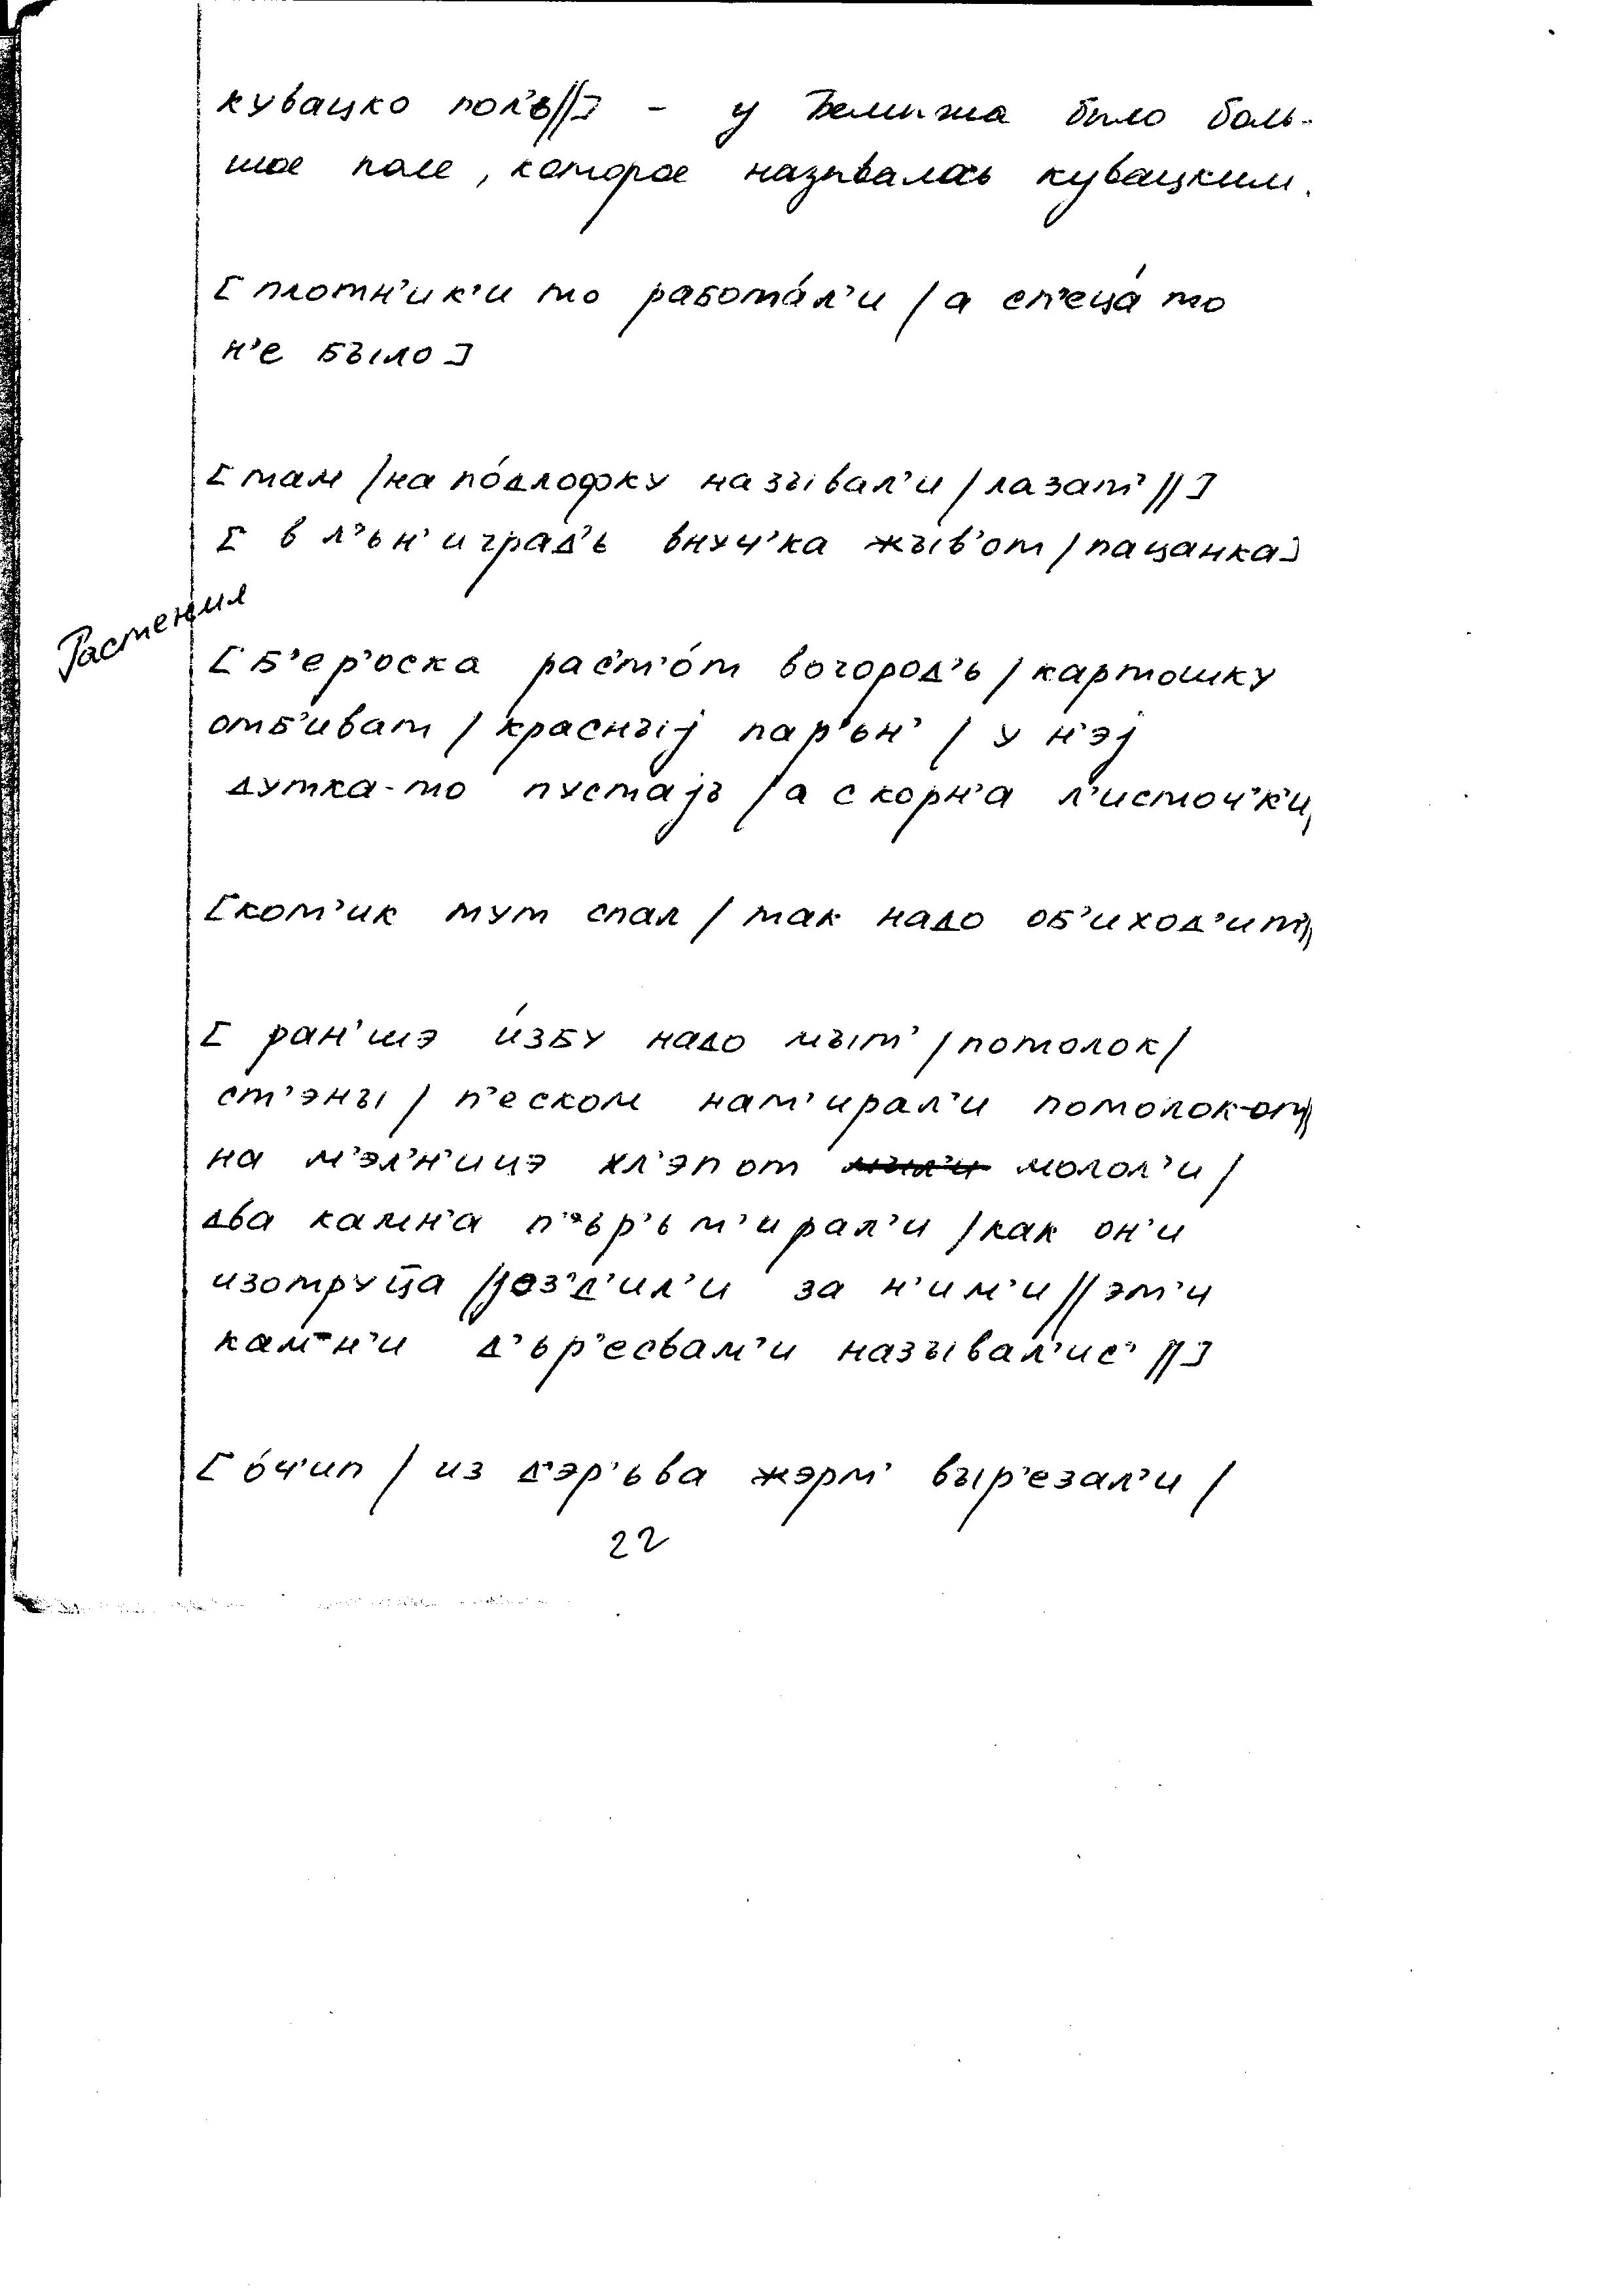 кувацко пол'ь//] – у Белижа было боль-
шое поле, которое называлось кувацким.
[ плотн'ик'и то работа́л'и / а сп'еца́ то
н'е было ]
[ там / на по́длофку называл'и / лазат' // ]
[ в л'ьн'иград'ь внуч'ка жыв'от / пацанка ]
Растения
[ б'ер'оска раст'о́т вогород'ь / картошку
отб'иват / красныj пар'ьн' / у н'эj
дутка-то пустаjъ / а с корн'а л'источ'к'и,
[ кот'ик тут спал / так надо об'иход'ит' //
[ ран'шэ и́збу надо мыт' / потолок /
ст'эны / п'еском нат'ирал'и потолок-от //
на м'эл'н'ицэ хл'эп от мыл'и молол'и /
два камн'а п'ьр'ьт'ирал'и / как он'и
изотруца // jоз'д'ил'и за н'им'и // эт'и
кам'н'и д'ьр'есвам'и называл'ис' // ]
[ о́ч'ип / из д'эр'ьва жэрт' выр'езал'и /
22